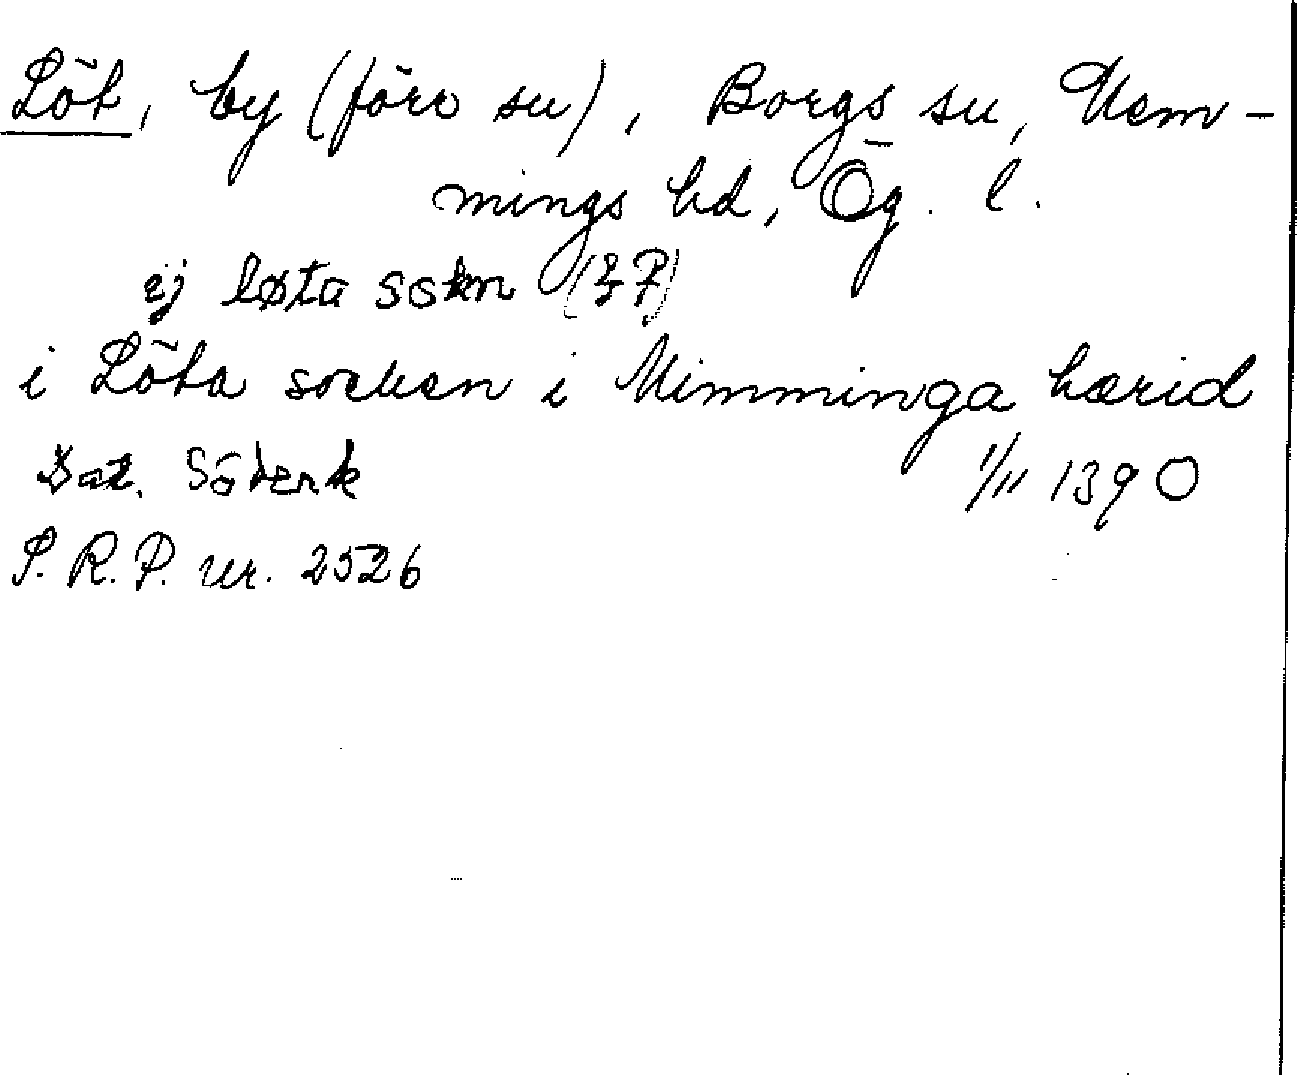 Löt, by (förr sn), Borgs sn, Mem-
mings hd, Ög. l.
ij løta sokn
i Löta socken i Mimminga hærid
Dat. Söderk 1/11 1390
S. R. P. nr. 2526